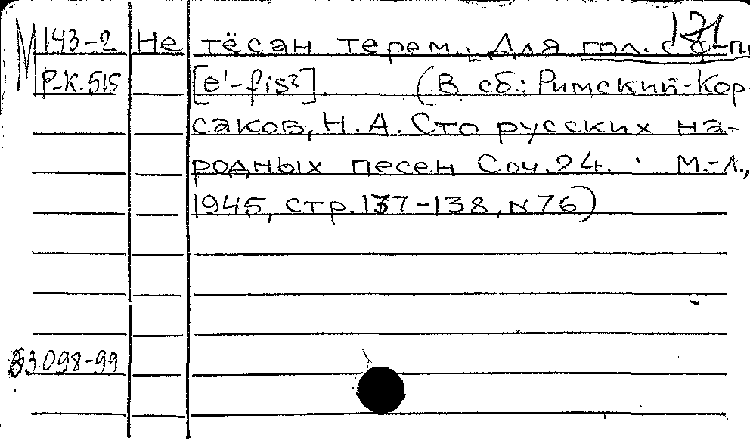 М 143-2 Не тёсан терем. Для гол. с ф-п 171
Р-К.515 [e'-fis²]. (В сб.: Римский-Кор
саков, Н.А. Сто русских на-
родных песен Соч.24. М.-Л.,
1945, стр.137-138, N76)
63.098-99